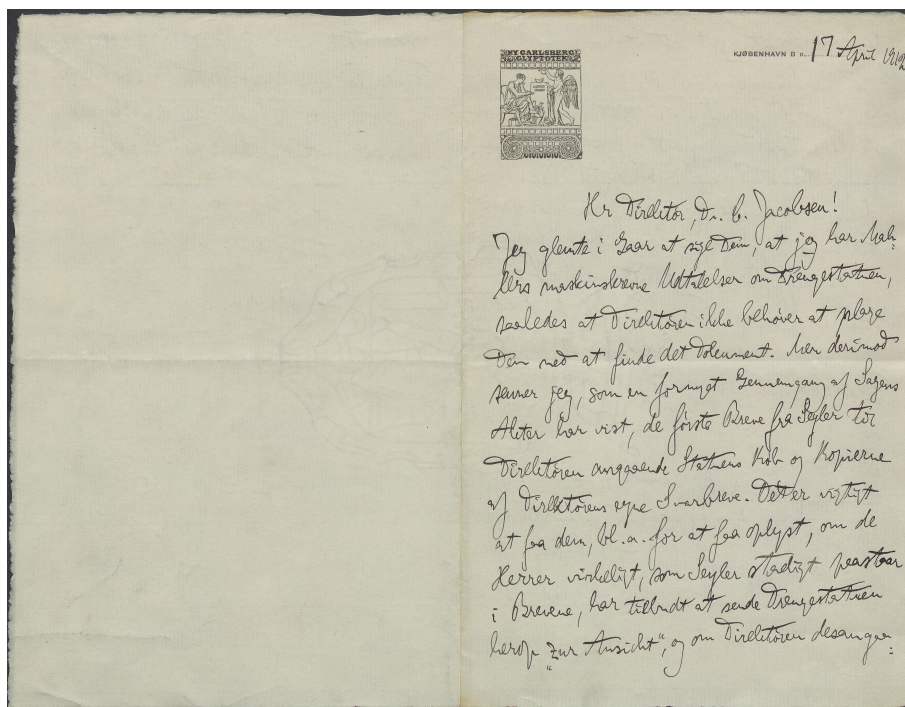 NY CARLSBERG
GLYPTOTEK
KJØBENHAVN B D. 17 April 1912
Hr Direktör, Dr. C. Jacobsen!
Jeg glemte i Gaar at sige Dem, at jeg har Mah-
lers maskinskrevne Udtalelser om Drengestatuen,
saaledes at Direktören ikke behøver at plage
Dem med at finde det Dokument. Men derimod
savner jeg, som en fornyet Gennemgang af Sagens
Akter har vist, de förste Breve fra Seyler til
Direktören angaaende Statuens Köb og Kopierne
af Direktörens egne Svarbreve. Det er vigtigt
at faa dem, bl. a. for at faa oplyst, om de
Herrer virkeligt, som Seyler stadigt paastaar
i Brevene, har tilbudt at sende Drengestatuen
herop „zur Ansicht“, og om Direktören desangaa-